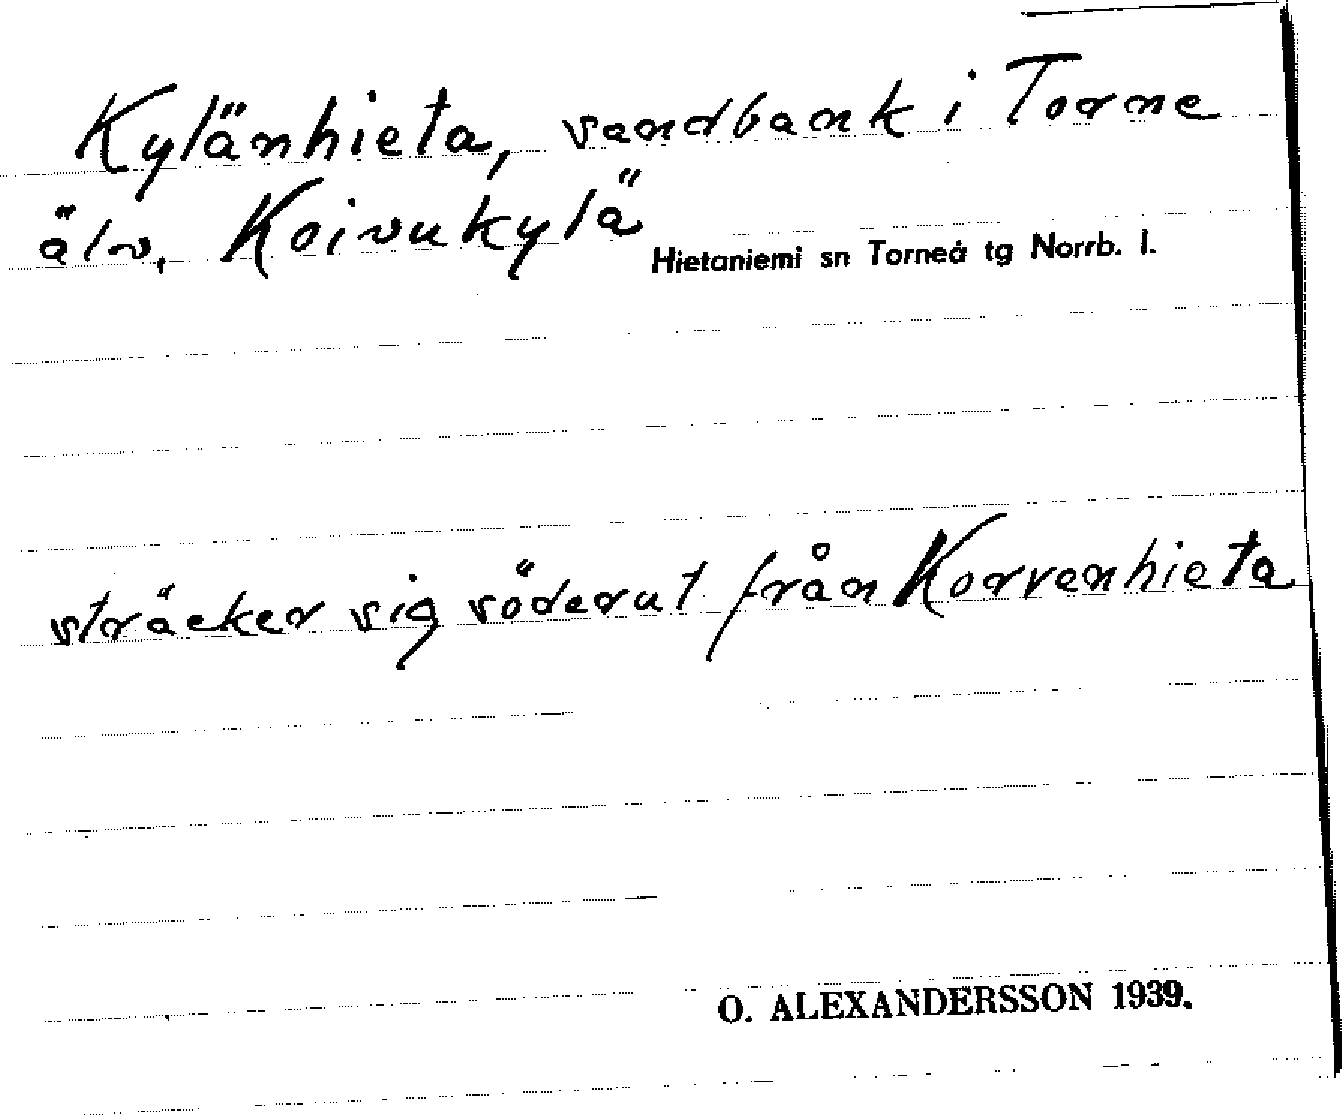 Kylänhieta, sandbank i Torne
älv, Koivukylä
Hietaniemi sn Torneå tg Norrb. l.
sträcker sig söderut från Korvenhieta
O. ALEXANDERSSON 1939.